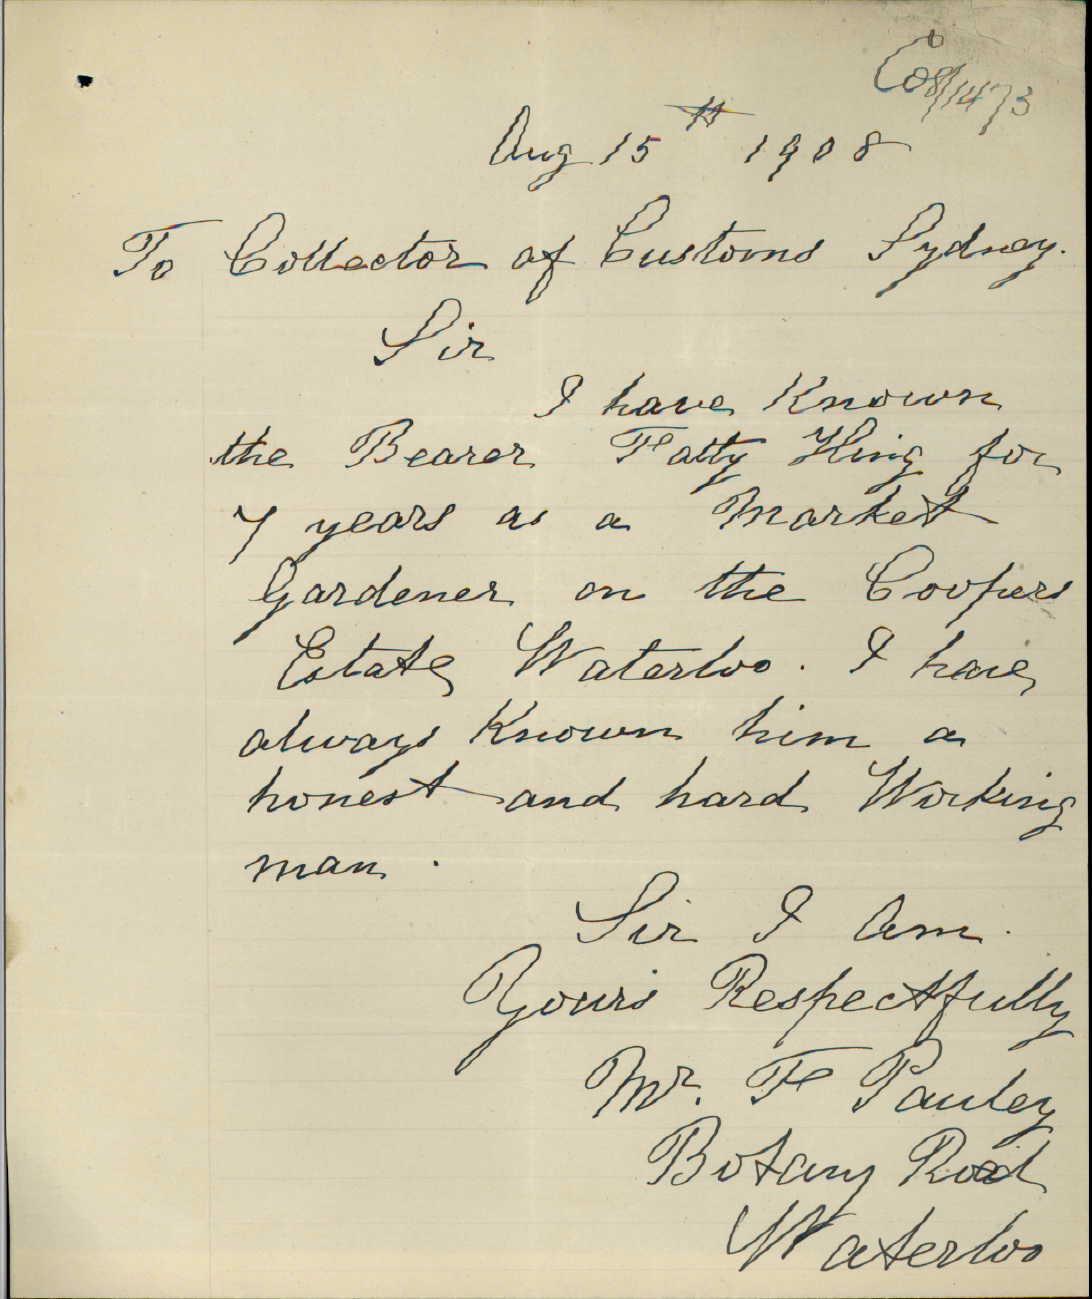 Co8/1473
Aug 15th 1908
To Collector of Customs Sydney.
Sir
I have Known
the Bearer Fatty Hing for
7 years as a Market
Gardener on the Coopers
Estate Waterloo. I have
always Known him a
honest and hard Working
man.
Sir I Am.
Yours Respectfully
Mr. F Pauley
Botany Road
Waterloo